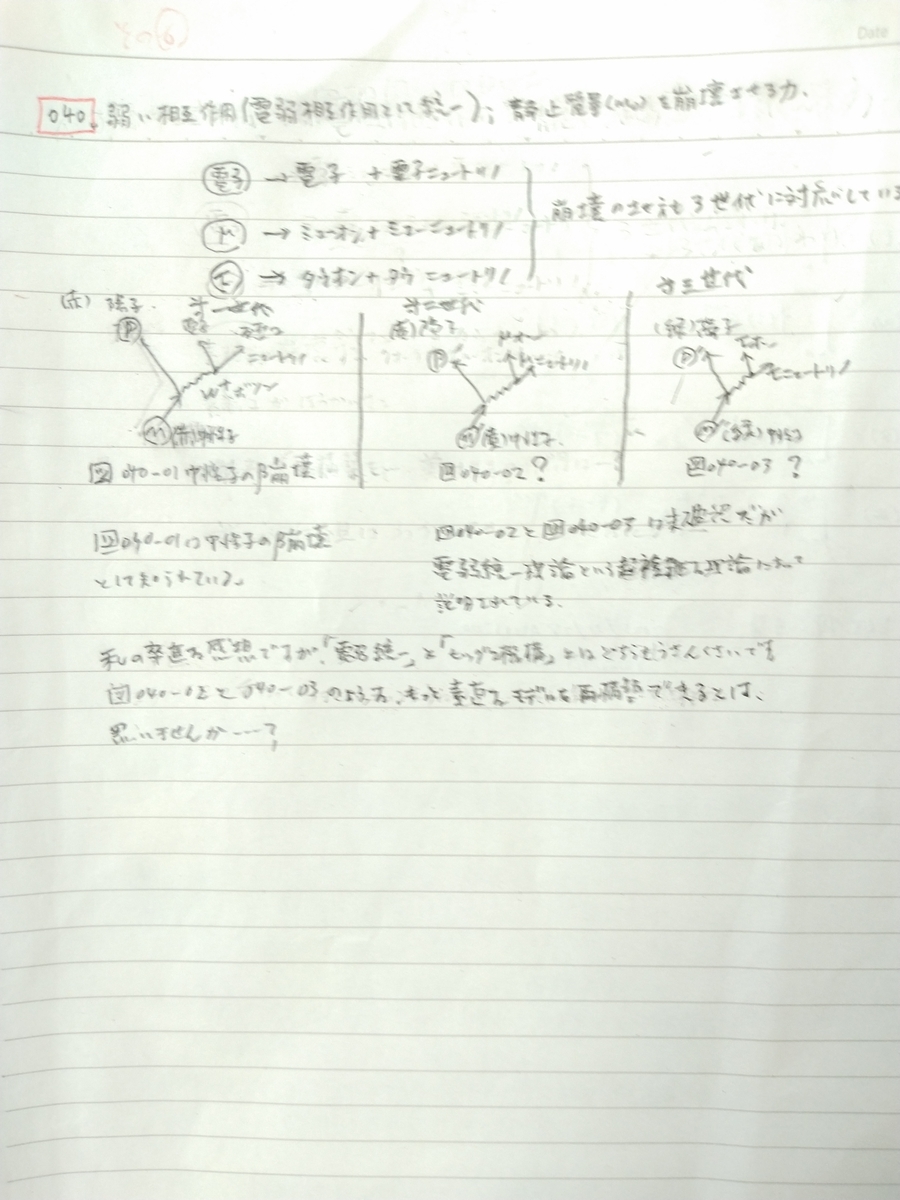 その⑥
Date
040. 弱い相互作用(電弱相互作用として統一); 静止質量(mo)を崩壊させる力.
電子 → 電子 + 電子ニュートリノ
μ → ミューオン + ミューニュートリノ
崩壊の仕方も3世代に対応している
τ → タウオン + タウニュートリノ
才三世代
(赤) 陽子. 才一世代
才二世代
(青)陽子
(緑)陽子
P 電子
P
P
ニュートリノ
W+ボソン
n 中性子
n 中性子.
n (緑)中性子
図040-01 中性子のβ崩壊
図040-02?
図040-03?
図040-01は中性子のβ崩壊
として知られている。
図040-02と図040-03は未確認だが
電弱統一理論という超複雑な理論によって
説明されている.
私の率直な感想ですが、「電弱統一」と「ヒッグス機構」とはどうもうさんくさいです
図040-02と040-03のような、もっと素直なモデルを再構築できるとは、
思いませんか----?